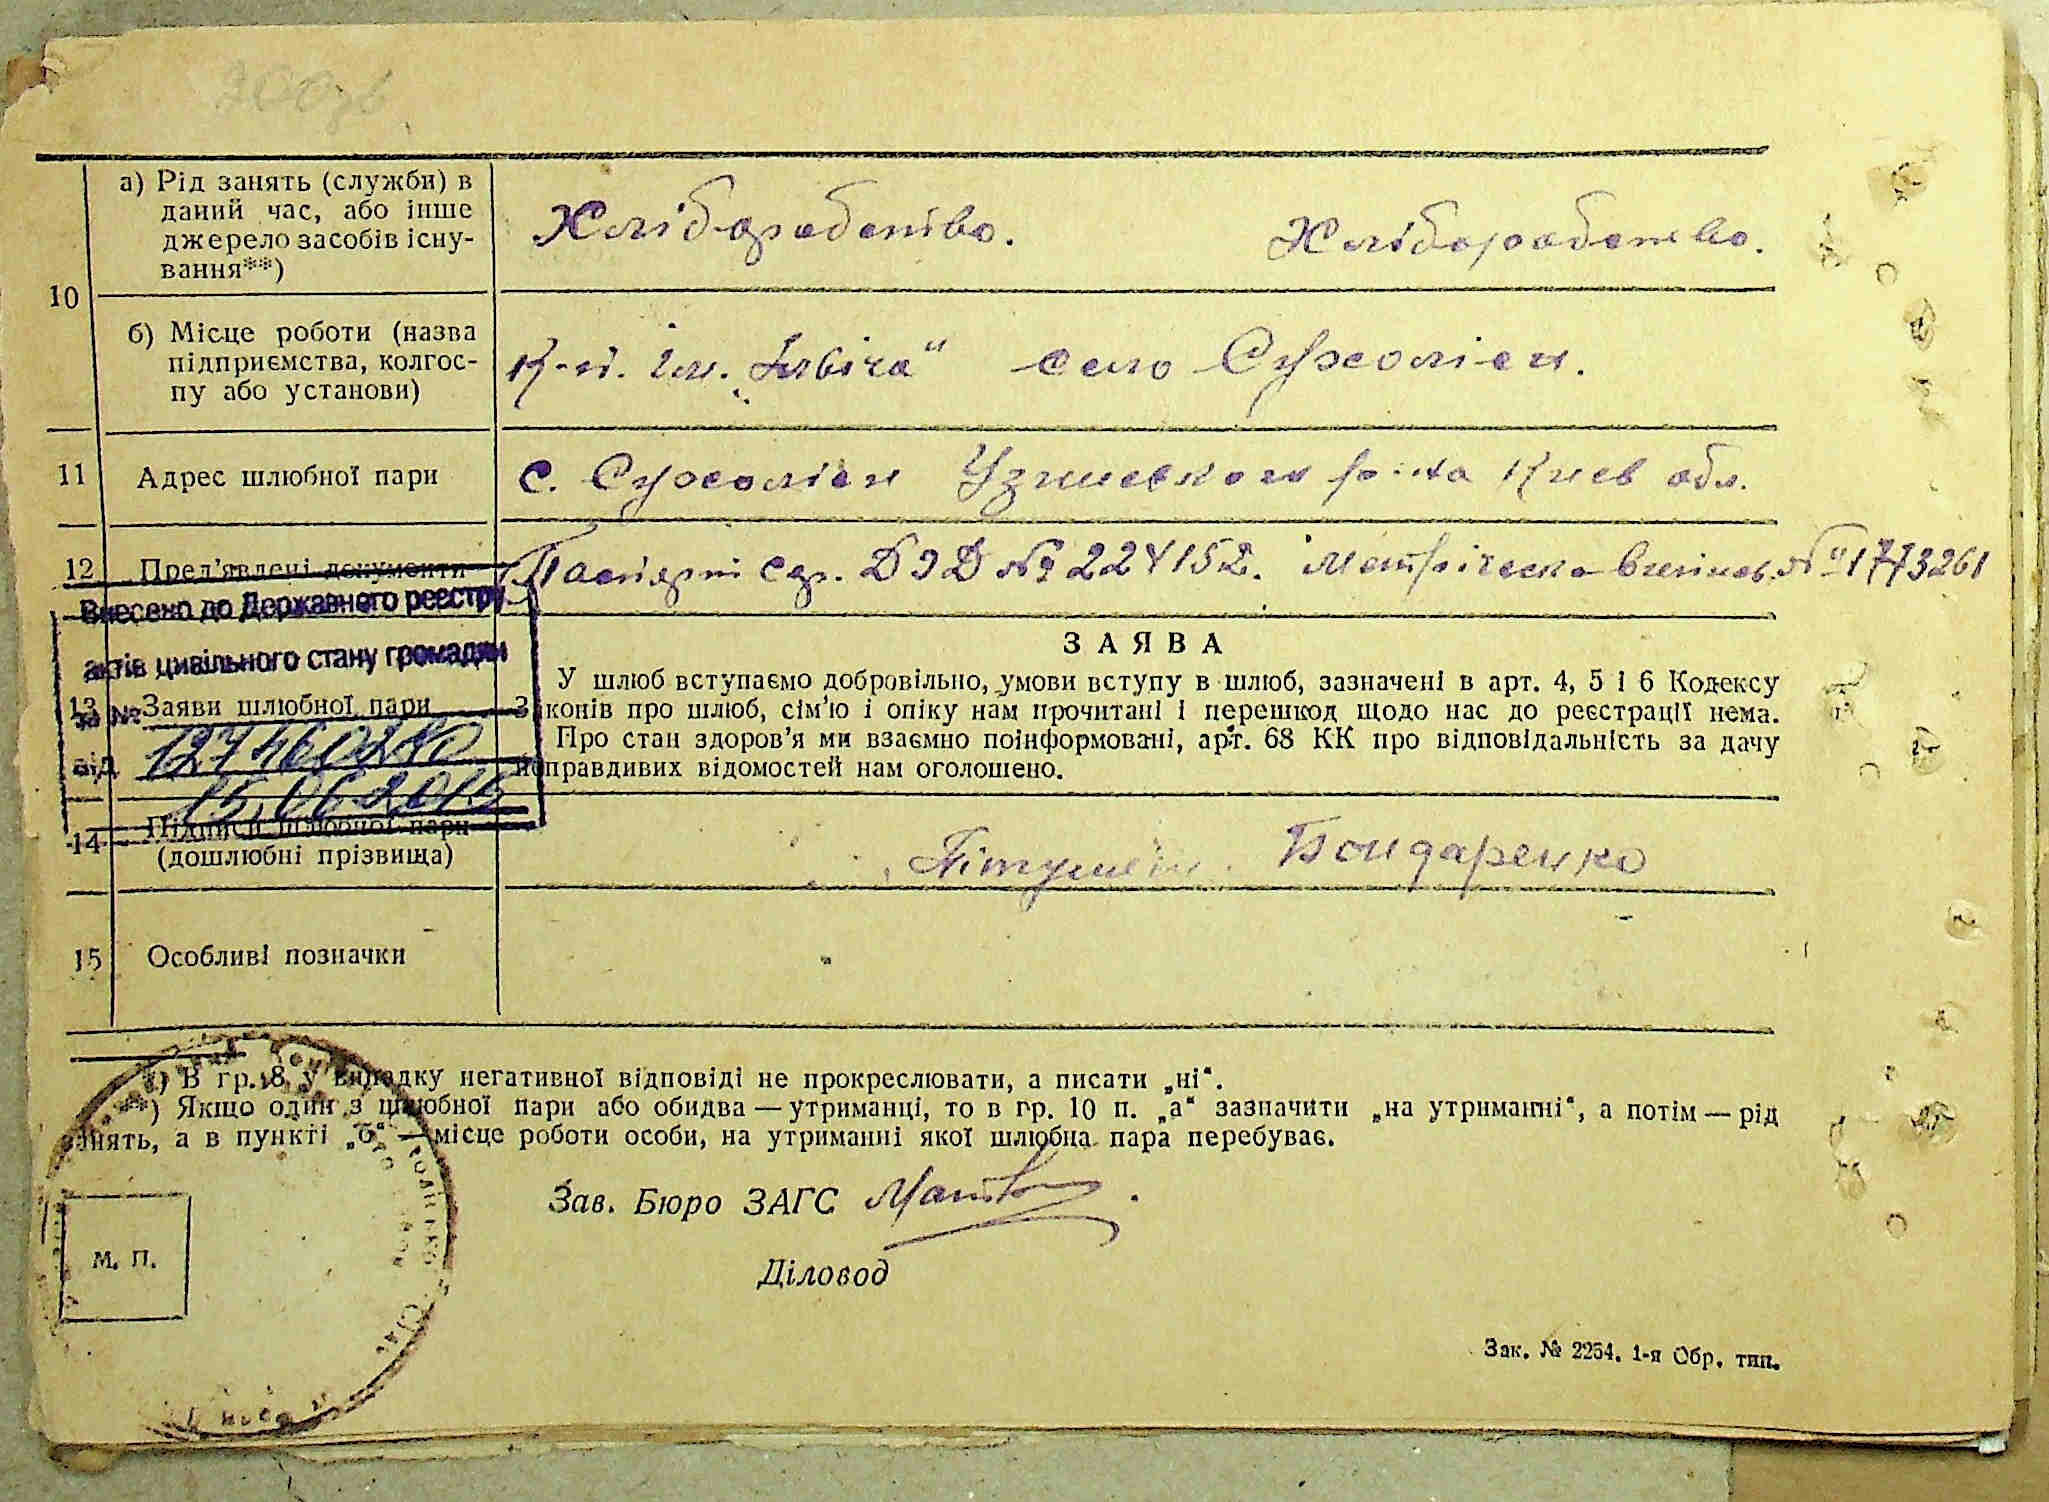 а) Рід занять (служби) в
даний час, або інше
джерело засобів існу-
вання**)
Хліборобство. Хлібороботво.
10
б) Місце роботи (назва
підприємства, колгос-
пу або установи)
К-п. Ім. Ілвіча" село Сухоліси.
11 Адрес шлюбної пари
с. Сухоліси Узинського р-на Киев обл.
12 Пред'явлені документи
Паспорт сер. ДЭД № 224152. №1773261
Внесено до Державного реєстру
актів цивільного стану громадян
за №
від 15.06.2015
13 Заяви шлюбної пари
ЗАЯВА
У шлюб вступаємо добровільно, умови вступу в шлюб, зазначені в арт. 4, 5 і 6 Кодексу
Законів про шлюб, сім'ю і опіку нам прочитані і перешкод щодо нас до реєстрації нема.
Про стан здоров'я ми взаємно поінформовані, арт. 68 КК про відповідальність за дачу
неправдивих відомостей нам оголошено.
14 Підписи шлюбної пари
(дошлюбні прізвища)
Бондаренко
15 Особливі позначки
*) В гр. 8 у випадку негативної відповіді не прокреслювати, а писати „ні“.
**) Якщо один з шлюбної пари або обидва — утриманці, то в гр. 10 п. „а“ зазначити „на утриманні“, а потім — рід
занять, а в пункті „б“ — місце роботи особи, на утриманні якої шлюбна пара перебуває.
Зав. Бюро ЗАГС
М. П.
Діловод
Зак. № 2254. 1-я Обр. тип.